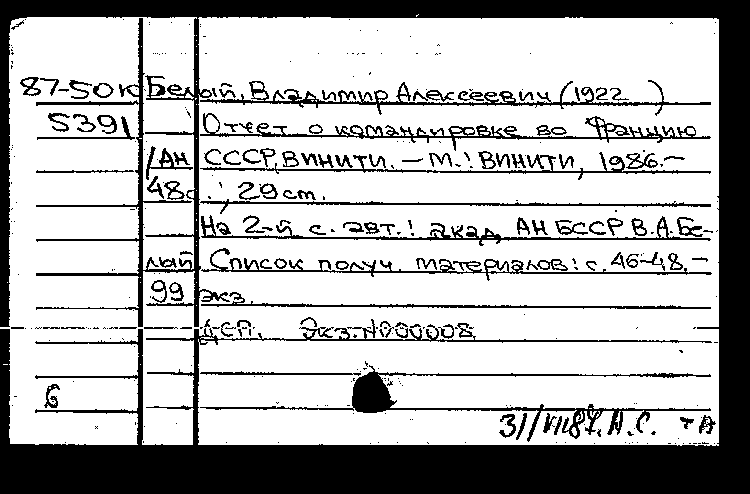 87-50к Белый, Владимир Алексеевич (1922 )
5391 Отчет о командировке во Францию
/АН СССР, ВИНИТИ. — М.: ВИНИТИ, 1986.—
48с.; 29 см.
На 2-й с. авт.: акад. АН БССР В.А. Бе-
лый. Список получ. материалов: с. 46-48.—
99 экз.
ДСП. Экз. N000008
6
31/VII87. А.С. + А